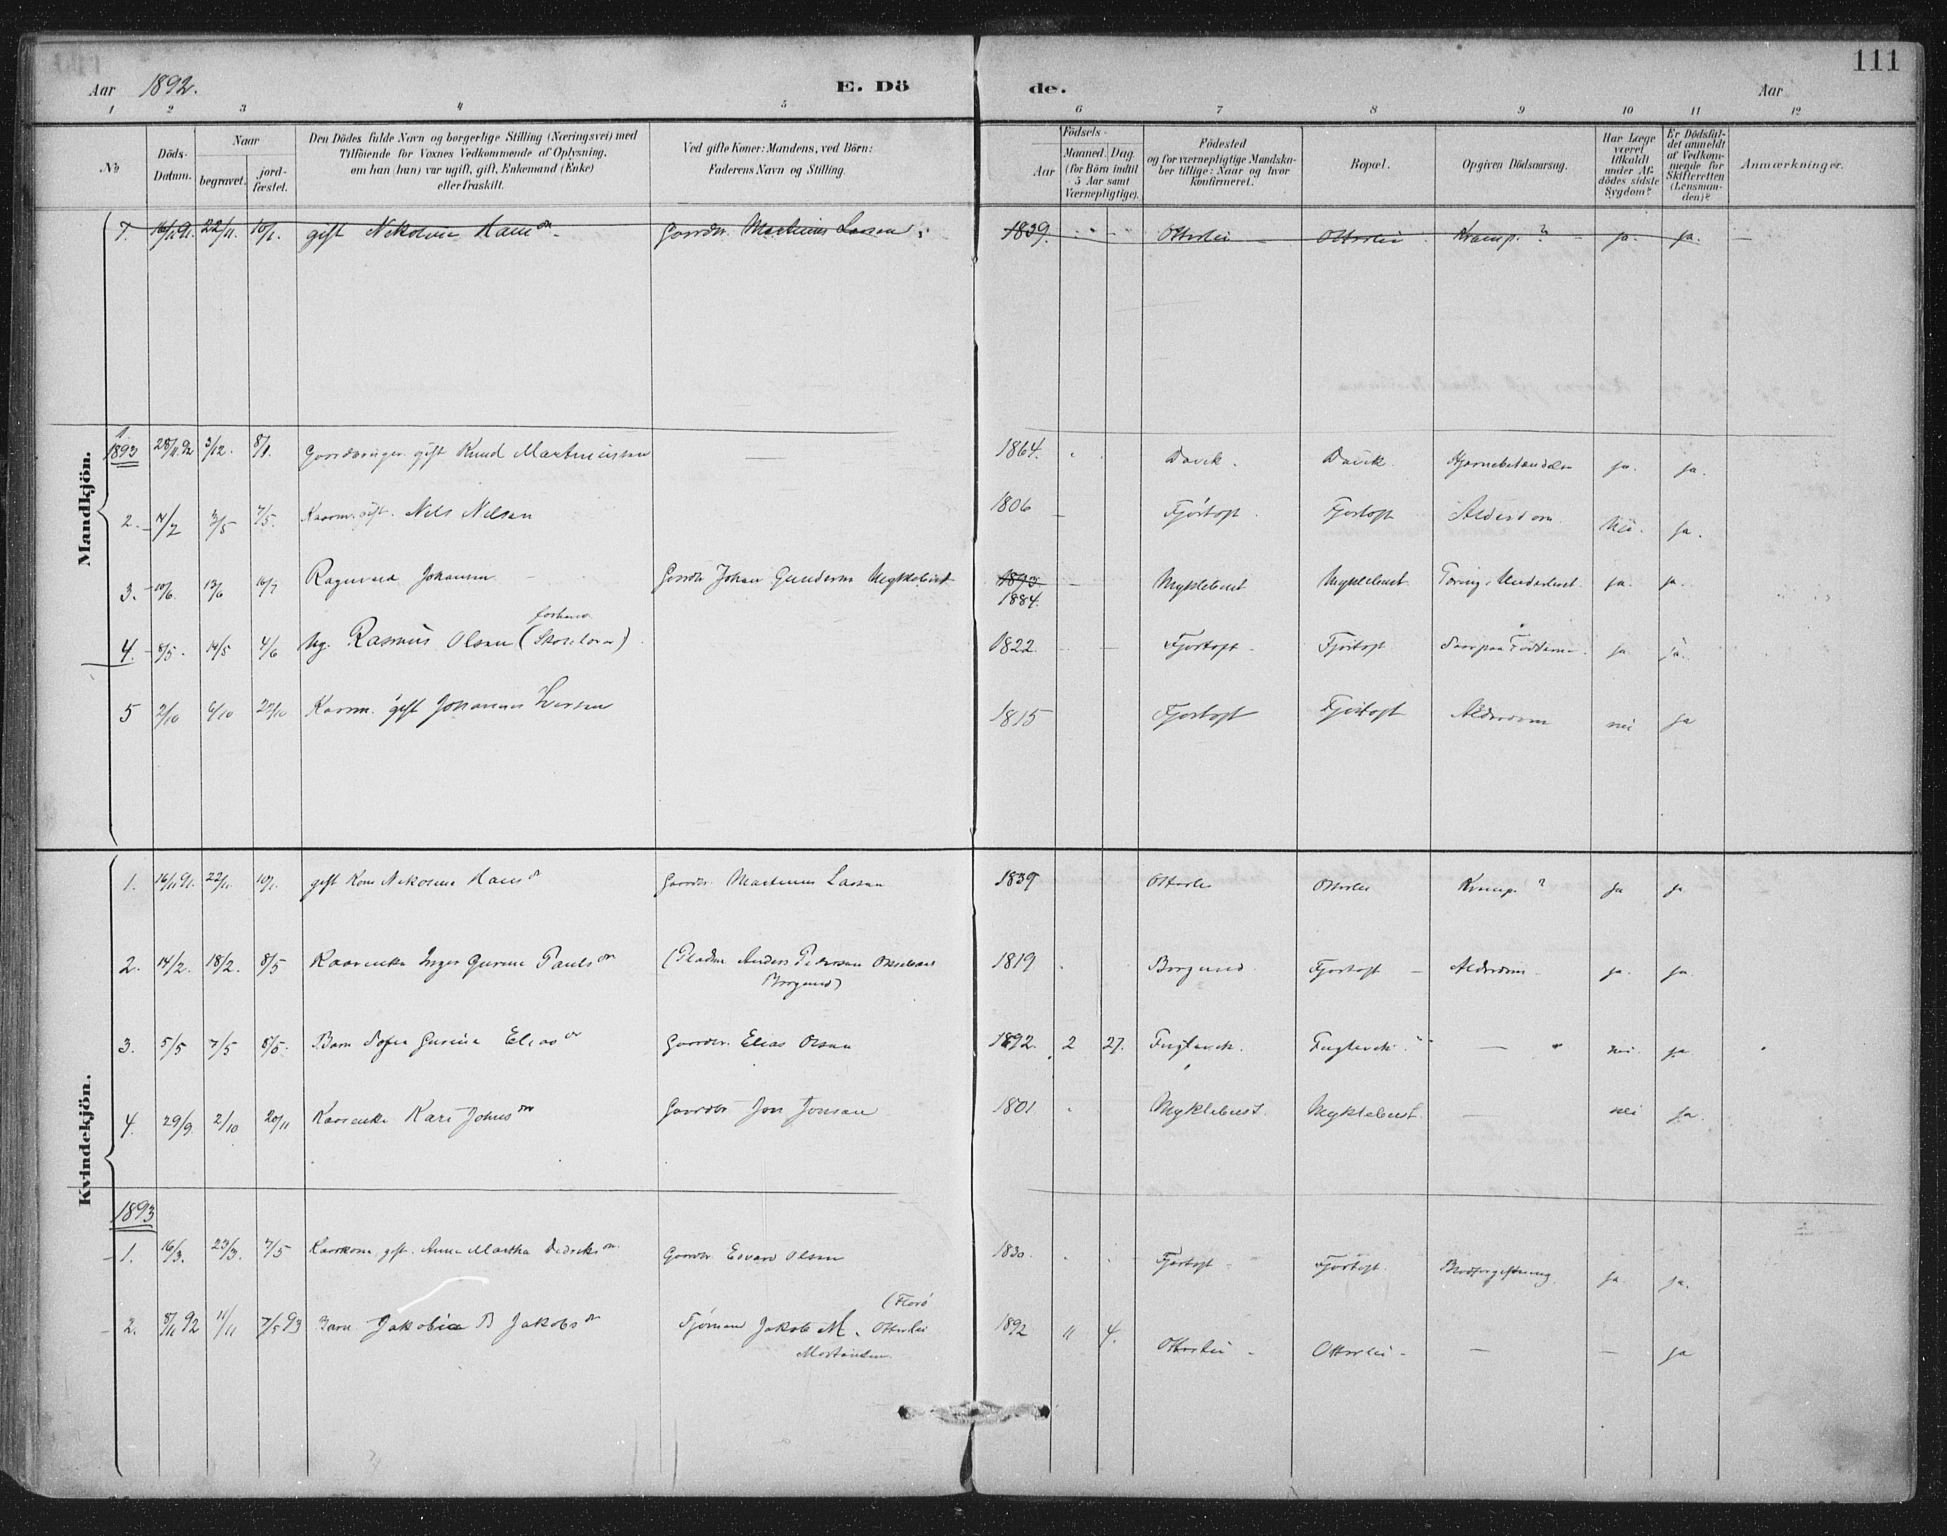 111
Aar 1892. E. Dö de. Aar
1 2 3 4 5 6 7 8 9 10 11 12
No
Döds-Datum.
Naar
begravet.
jord-fæstet.
Den Dödes fulde Navn og borgerlige Stilling (Næringsvei) med
Tilföiende for Voxnes Vedkommende af Oplysning,
om han (hun) var ugift, gift, Enkemand (Enke)
eller fraskilt.
Ved gifte Koner: Mandens, ved Börn:
Faderens Navn og Stilling.
Födsels-
Aar
Maaned. Dag
(for Börn indtil
5 Aar samt
Værnepligtige).
Födested
og for værnepligtige Mandska-
ber tillige: Naar og hvor
konfirmeret.
Bopæl.
Opgiven Dödsaarsag.
Har Læge
været
tilkaldt
under Af-
dödes sidste
Sygdom?
Er Dödsfal-
det anmeldt
af Vedkom-
mende for
Skifteretten
(Lensman-
den)?
Anmærkninger.
Mandkjön.
7. 16/11 91. 22/11. 10/1. gift Nikoline Hans dr. Gaardbr. Martinus Lassen 1839. Otterlei Otterlei Kramp.? ja. ja. —
1
1893 28/11 92 3/12. 8/1. gift Knud Martinussen — 1864. Davik. Davik. ja. ja.
2. 3/5 7/5. gift. Nils Nilsen 1806 — Fjörtoft. Fjortoft Alderdom. Nei. ja.
3. 10/6. 13/6 16/7 Ragnvald Johansen Johan Gunderson Myklebust 1893 — Myklebust Myklebust. ja. ja.
1884.
4. 8/5. 14/5 4/6 Ug. Rasmus Olsen ( ) 1822 — Fjortoft. Fjörtoft ja ja.
5 2/10 6/10 22/10 Kaarm. gift Johannes Iversen 1815 Fjortoft Fjörtoft Alderdom nei ja
Kvindekjön.
1. 16/11 91. 22/11. 10/1. gift Kone Nikoline Hans dr Gaardbr. Martinus Lassen 1839 Otterlei Otterlei Kramp. ? ja ja
2. 14/2. 18/2. 8/5 Kaarenke Inger Gurine Pauls dr (Pladsm Anders Pedersen 1819 Borgund. Fjortoft — Alderdom. ja. ja.
Borgund)
3. 5/5 7/5 8/5. Barn Sofie Gurine Elias dr Gaardbr. Elias Olsen 1892. 2 27. Fuglevik. Fuglevik. — nei. ja
4. 29/9. 2/10 20/11 Kaarenke Kari Johns dr Gaardbr Jon Jonsen 1801. Myklebust. Myklebust. — nei ja.
1893
1. 16/3. 23/3. 7/5 Kaarkone gift. Anne Martha Didriks dr. Gaardbr Edvard Olsen 1830. Fjortoft Fjortoft. Blodforgiftning. ja. ja.
2. 8/11 92 11/11 7/5 93 Barn Jakobia B Jakobs dr Jakob M. Otterlei 1892 11 4. Otterlei — Otterlei — — — ja
(Florö
Mortensen